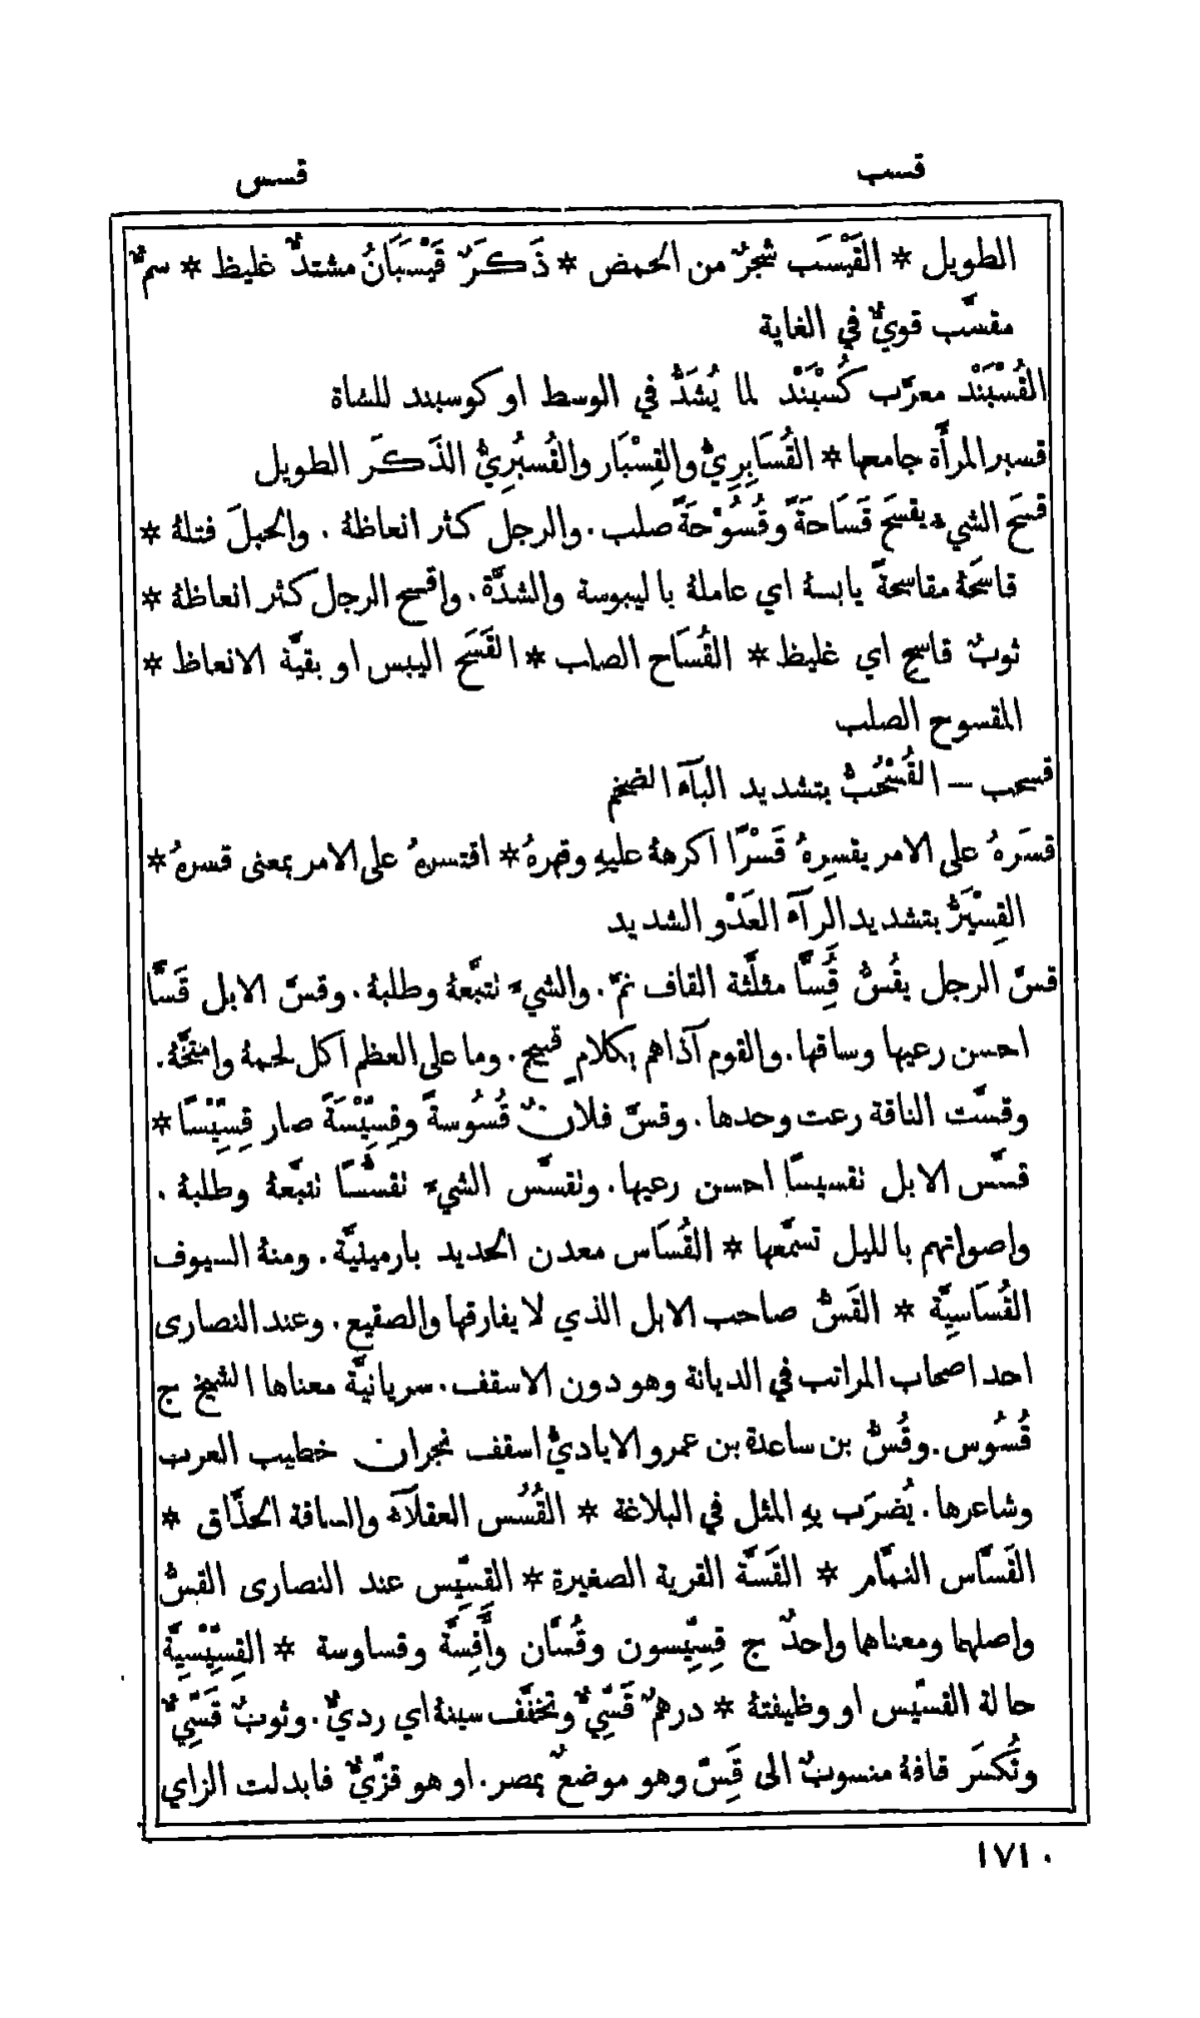 قسب
قسس
الطويل * القَيْسَب شجرٌ من الحمض * ذَكَرٌ قَيْسَبَانُ مشتدٌّ غليظ * سمٌّ
مقسَّب قويٌّ في الغاية
القُسْبَنْد معرَّب كُسْبَنْد لما يُشَدُّ في الوسط او كوسبند للشاة
قسبر المرأَة جامعها * القُسَابِرِيُّ والقِسْبَار والقُسبُرِيُّ الذَكَر الطويل
قسَحَ الشيءُ يقسَح قَسَاحَةً وقُسُوْحَةً صلب. والرجل كثر انعاظهُ . والحبلَ فتلهُ *
قاسَحَهُ مقاسحةً يابسهُ اي عاملهُ باليبوسة والشدَّة. واقسح الرجل كثر انعاظهُ *
ثوبٌ قاسح اي غليظ * القُسَاح الصلب * القَسَح اليبس او بقيَّة الانعاظ *
المقسوح الصلب
قسحب – القُسْحُبُّ بتشديد البآءِ الضخم
قسَرَهُ على الامر يقسِرهُ قَسْرًا اكرههُ عليهِ وقهرهُ * اقتسرهُ على الامر بمعنى قسرهُ *
القِسْيَرُّ بتشديد الرآء العَدْو الشديد
قسَّ الرجل يقُسُّ قُِسًّا مثلَّثة القاف نمَّ. والشيءَ تتبَّعهُ وطلبهُ. وقسَّ الابل قَسًّا
احسن رعيها وساقها. والقوم آذاهم بكلامٍ قبيح. وما على العظم اكل لحمهُ وامتخَّهُ.
وقسَّت الناقة رعت وحدها. وقسَّ فلانٌ قُسُوسةً وقِسِّيْسَةً صار قِسِّيْسًا *
قسَّس الابل تقسيسًا احسن رعيها. وتقسَّس الشيءَ تقسُّسًا تتبَّعهُ وطلبهُ .
واصواتهم بالليل تسمَّعها * القُسَاس معدن الحديد بارمينيَّة. ومنهُ السيوف
القُسَاسِيَّة * القَسُّ صاحب الابل الذي لا يفارقها والصقيع. وعند النصارى
احد اصحاب المراتب في الديانة وهو دون الاسقف. سريانيَّة معناها الشيخ ج
قُسُوس. وقُسُّ بن ساعدة بن عمرو الاياديُّ اسقف نجران خطيب العرب
وشاعرها. يُضرَب بهِ المثل في البلاغة * القُسُس العقلآء والساقة الحذَّاق *
القَسَّاس النمَّام * القَسَّة القرية الصغيرة * القسِّيس عند النصارى القسُّ
واصلهما ومعناهما واحدٌ ج قِسِّيسون وقُسَّان وأَقِسَّة وقساوسة * القِسِّيْسيَّة
حالة القسِّيس او وظيفتهُ * درهمٌ قَسِّيٌّ وتخفَّف سينهُ اي رديٌّ. وثوبٌ قَسِّيٌّ
وتُكسَر قافهُ منسوبٌ الى قَِسّ وهو موضعٌ بمصر. او هو قزّيٌّ فابدلت الزاي
١٧١٠